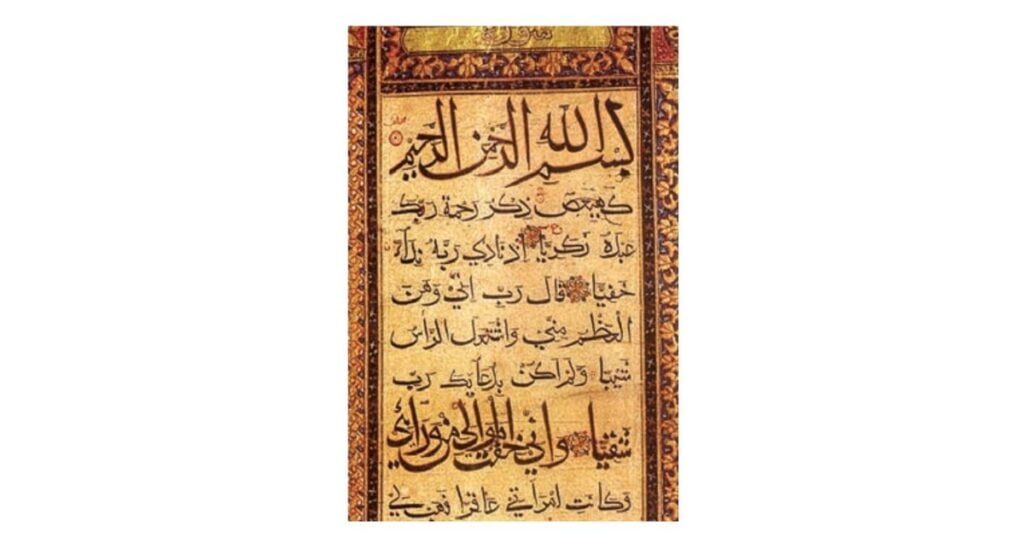 بسم الله الرحمن الرحيم
كهيعص ذكر رحمة ربك
عبده زكريا إذ نادي ربه نداء
خفيا قال رب اني وهن
العظم مني واشتعل الرأس
شيبا ولم اكن بدعايك رب
شقيا واني خفت الموالي من ورائي
وكانت امراتي عاقرا فهب لي